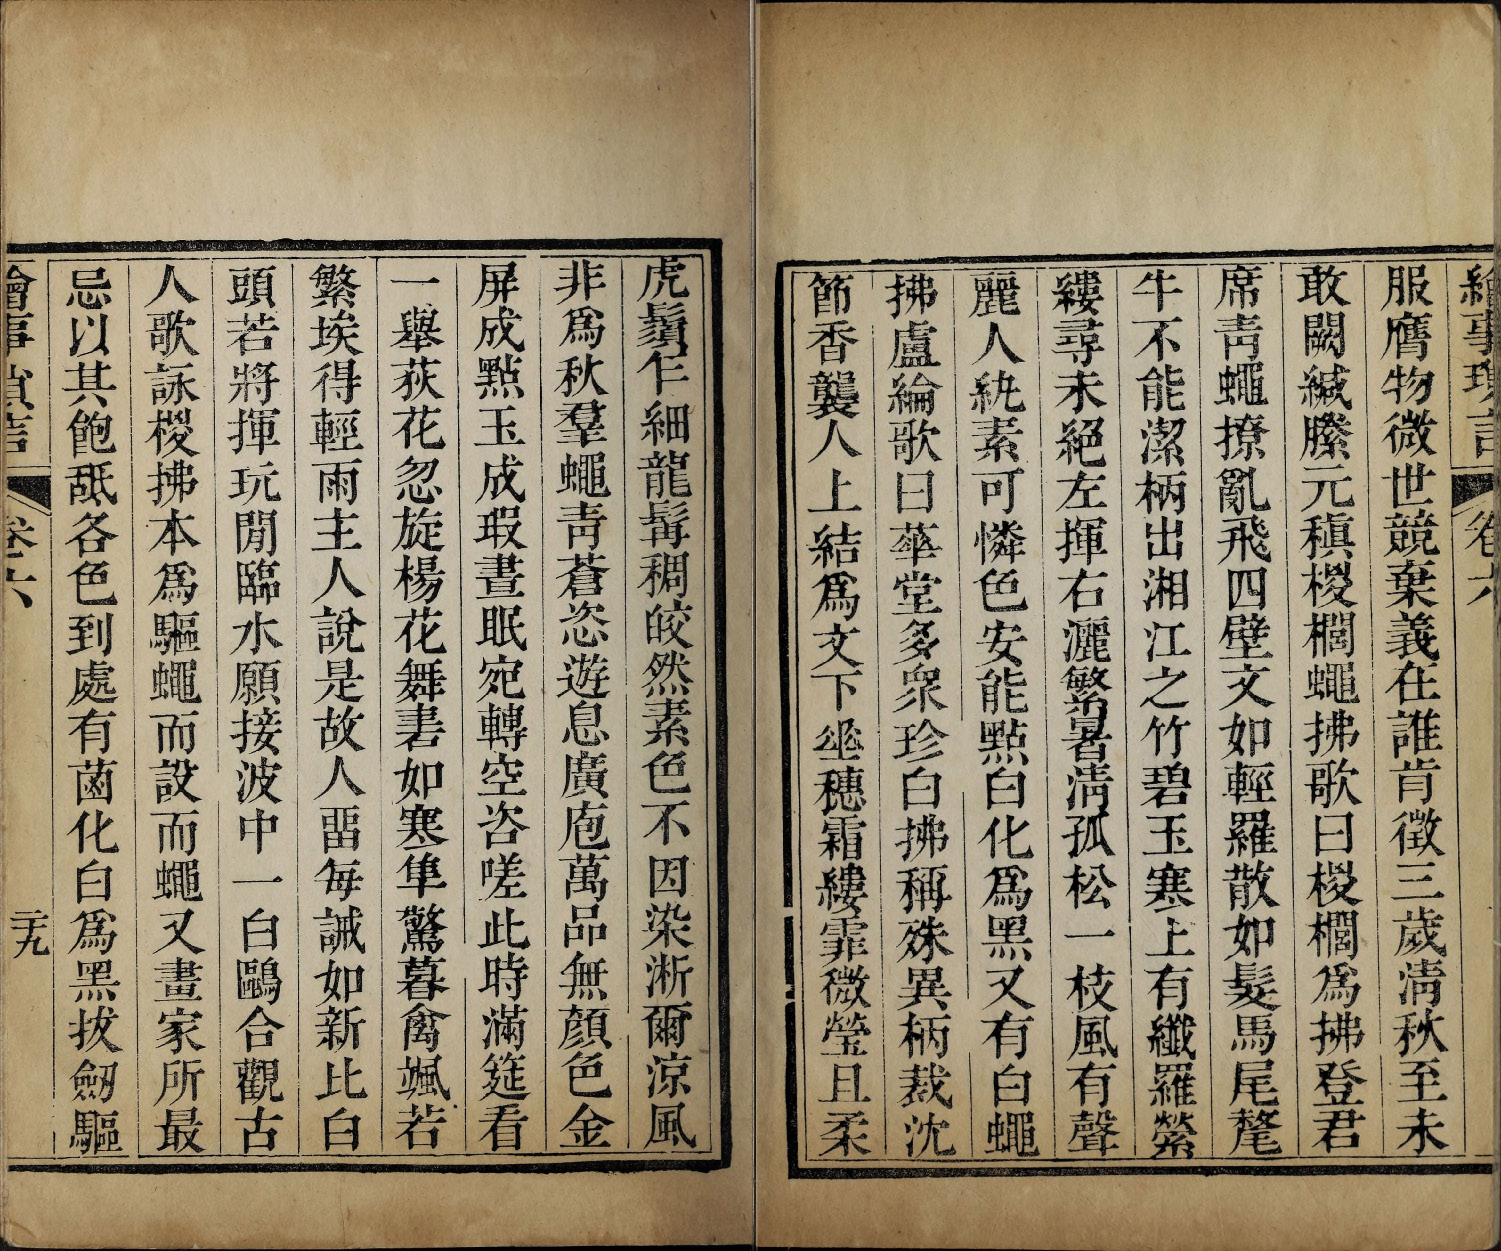 繪事瑣言 卷六
服膺物微世競棄義在誰肯徵三歲淸秋至未
敢闕緘縢元稹椶櫚蠅拂歌曰椶櫚爲拂登君
席靑蠅撩亂飛四壁文如輕羅散如髮馬尾氂
牛不能潔柄出湘江之竹碧玉寒上有纖羅縈
縷尋未絕左揮右灑繁暑淸孤松一枝風有聲
麗人紈素可憐色安能點白化爲黑又有白蠅
拂盧綸歌曰華堂多衆珍白拂稱殊異柄裁沈
節香襲人上結爲文下垂穗霜縷霏微瑩且柔
虎鬚乍細龍髯稠皎然素色不因染淅爾涼風
非爲秋羣蠅靑蒼恣遊息廣庖萬品無顏色金
屏成點玉成瑕晝眠宛轉空咨嗟此時滿筵看
一舉荻花忽旋楊花舞砉如寒隼驚暮禽颯若
繁埃得輕雨主人說是故人畱每誡如新比白
頭若將揮玩閒臨水願接波中一白鷗合觀古
人歌詠椶拂本爲驅蠅而設而蠅又畫家所最
忌以其飽䑛各色到處有菌化白爲黑拔劒驅
繪事瑣言 卷六 二十九